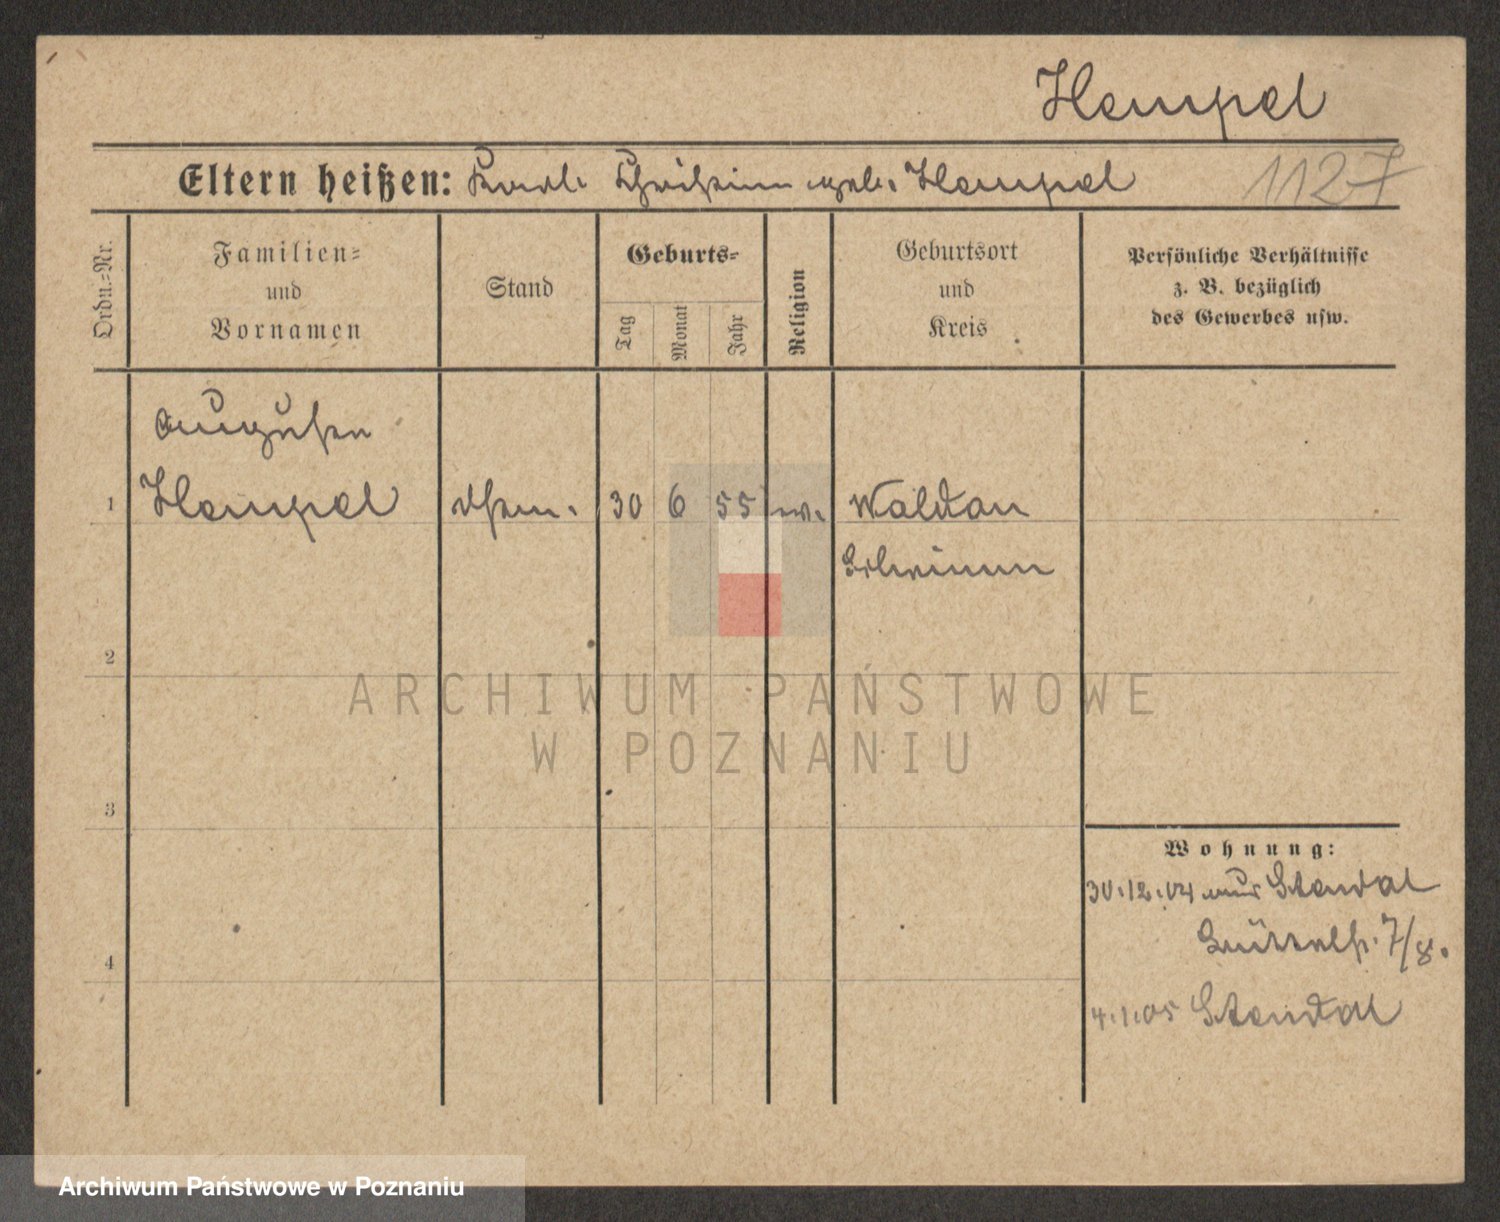 Hempel
Eltern heißen: Karl Christine geb. Hempel
1127
Ordn.=Nr.
Familien=
und
Vornamen
Stand
Geburts=
Tag
Monat
Jahr
Religion
Geburtsort
und
Kreis
Persönliche Verhältnisse
z. B. bezüglich
des Gewerbes usw.
Auguste
1 Hempel 30 6 55 ev. Waldau
2
ARCHIWUM PAŃSTWOWE
W POZNANIU
3
Wohnung:
30.12.04 aus Stendal
7/8.
4
4.1.05 Stendal
Archiwum Państwowe w Poznaniu